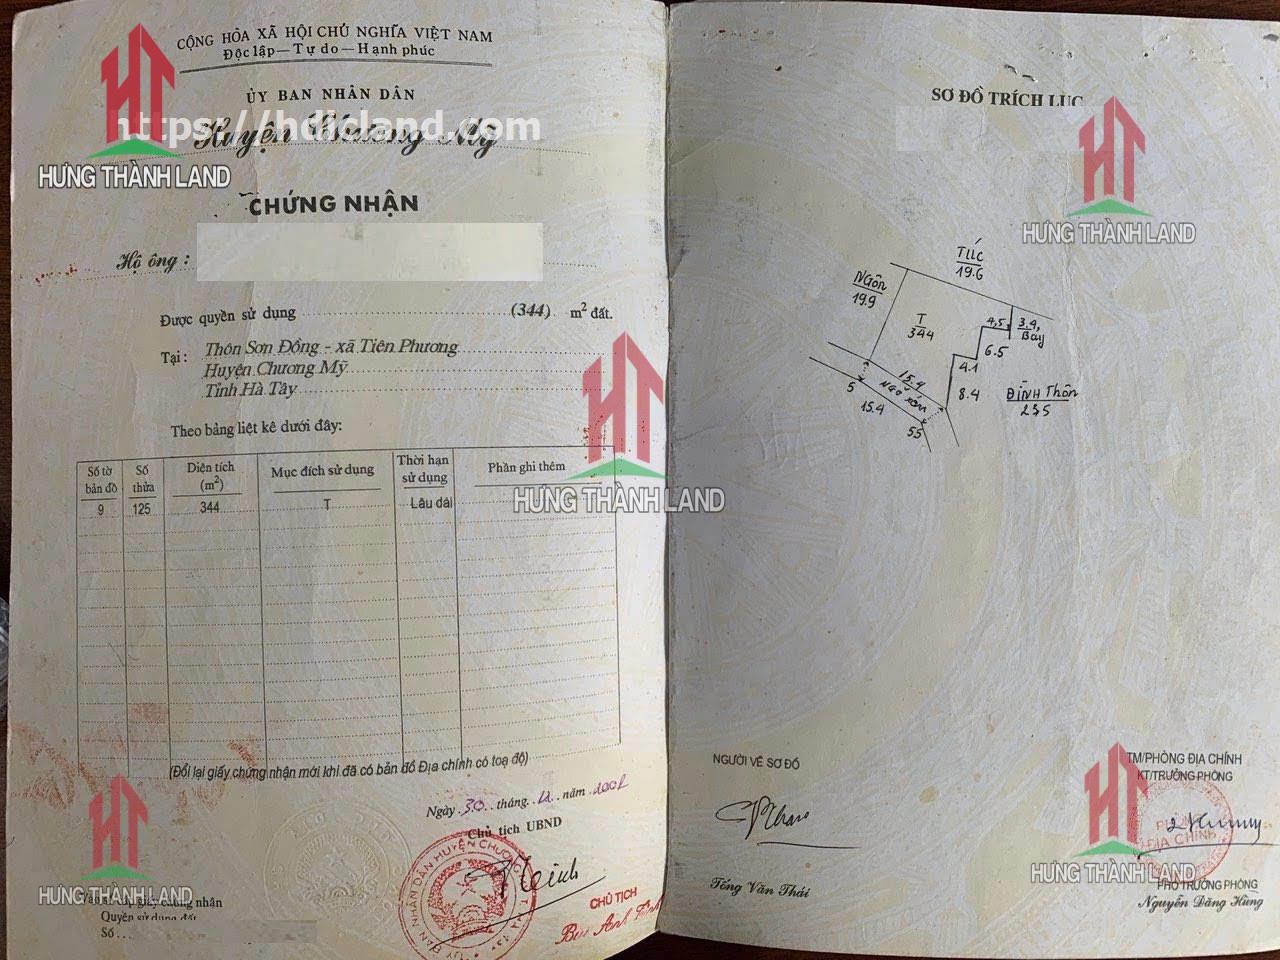 CỘNG HÒA XÃ HỘI CHỦ NGHĨA VIỆT NAM
Độc lập — Tự do — Hạnh phúc
ỦY BAN NHÂN DÂN
https://hdicland.com
Huyện Chương Mỹ
HƯNG THÀNH LAND
CHỨNG NHẬN
Hộ ông :
Được quyền sử dụng (344) m² đất.
Tại : Thôn Sơn Đồng - xã Tiên Phương
Huyện Chương Mỹ
Tỉnh Hà Tây
Theo bảng liệt kê dưới đây:
Số tờ bản đồ Số thửa Diện tích (m²) Mục đích sử dụng Thời hạn sử dụng Phần ghi thêm
9 125 344 T Lâu dài
HƯNG THÀNH LAND
(Đổi lại giấy chứng nhận mới khi đã có bản đồ Địa chính có toạ độ)
Ngày 30 tháng 12 năm 2001
Chủ tịch UBND
HƯNG THÀNH LAND
giấy chứng nhận
Quyền sử dụng đất
Số
CHỦ TỊCH
SƠ ĐỒ TRÍCH LỤC
HƯNG THÀNH LAND
19.6
NGÔN
19.9
T
344
4,5
3.9
Bay
6.5
4.1
8.4
ĐÌNH Thôn
235
15.4
NGÕ XÓM
5
15.4
55
NGƯỜI VẼ SƠ ĐỒ
Tống Văn Thái
TM/PHÒNG ĐỊA CHÍNH
KT/TRƯỞNG PHÒNG
ĐỊA CHÍNH
HƯNG THÀNH LAND
PHÓ TRƯỞNG PHÒNG
Nguyễn Đăng Hùng